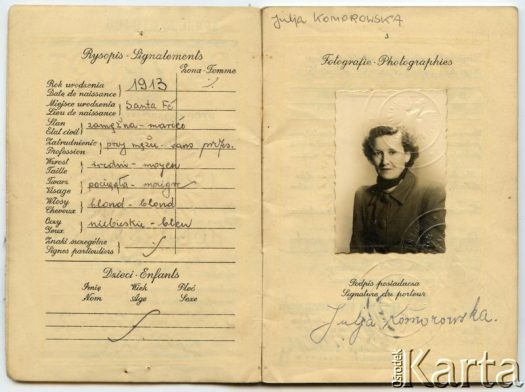 Rysopis - Signalements
Żona - Femme
Rok urodzenia
Date de naissance
1913
Miejsce urodzenia
Lieu de naissance
Santa Fé
Stan
Etat civil
zamężna - marieé
Zatrudnienie
Profession
przy mężu - sans prfs.
Wzrost
Taille
średni - moyen
Twarz
Visage
pociągła - maigre
Włosy
Cheveux
blond - blond
Oczy
Yeux
niebieskie - bleu
Znaki szczególne
Signes particuliers
Dzieci - Enfants
Imię Wiek Płeć
Nom Age Sexe
Julja KOMOROWSKA
3
Fotografie - Photographies
Podpis posiadacza
Signature du porteur
Julja Komorowska.
ośrodek
Karta